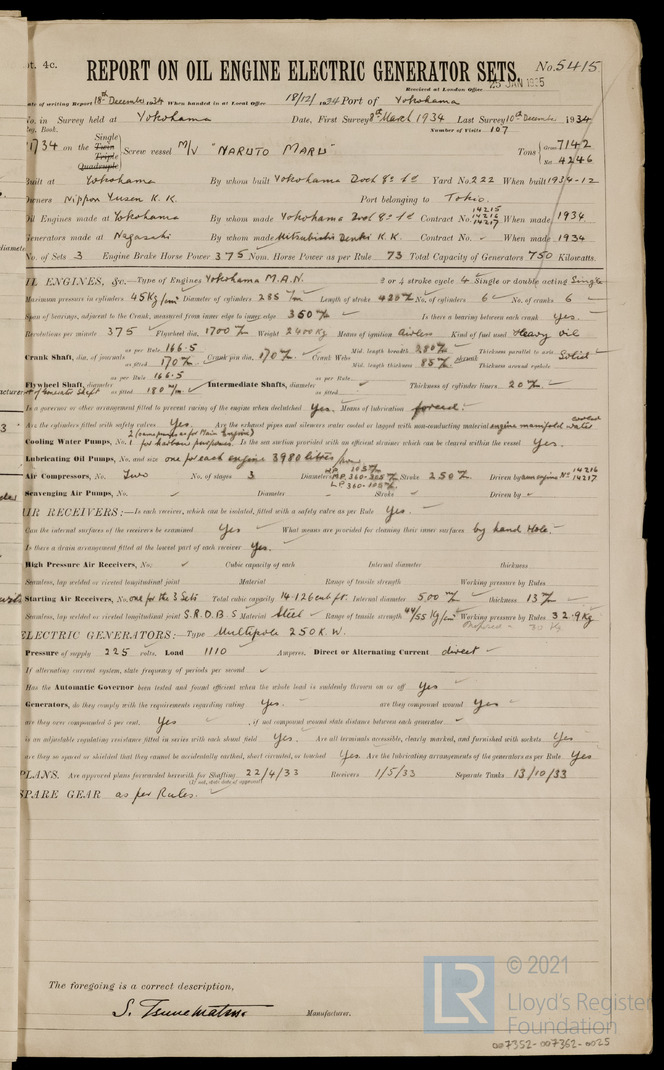 pt. 4c.
REPORT ON OIL ENGINE ELECTRIC GENERATOR SETS.
No. 5415
Received at London Office 25 JAN 1935
ate of writing Report 18th December 1934 When handed in at Local Office 18/12/1934 Port of Yokohama
No. in Survey held at Yokohama Date, First Survey 8th March 1934 Last Survey 10th December 1934
Reg. Book. Number of Visits 107
Single
Twin
Triple
Quadruple
1734 on the Screw vessel M/V "NARUTO MARU" Tons Gross 7142
Net 4246
Built at Yokohama By whom built Yokohama Dock Co Ld Yard No. 222 When built 1934-12
Owners Nippon Yusen K. K. Port belonging to Tokio.
Oil Engines made at Yokohama By whom made Yokohama Dock Co Ld Contract No. 14215 14216 14217 When made 1934
Generators made at Nagasaki By whom made Mitsubishi Denki K. K. Contract No. - When made 1934
No. of Sets 3 Engine Brake Horse Power 375 Nom. Horse Power as per Rule 73 Total Capacity of Generators 750 Kilowatts.
OIL ENGINES, &c.—Type of Engines Yokohama M.A.N. 2 or 4 stroke cycle 4 Single or double acting Single
Maximum pressure in cylinders 45 Kg/cm² Diameter of cylinders 285 m/m Length of stroke 420 m/m No. of cylinders 6 No. of cranks 6
Span of bearings, adjacent to the Crank, measured from inner edge to inner edge 350 m/m Is there a bearing between each crank Yes.
Revolutions per minute 375 Flywheel dia. 1700 m/m Weight 2400 Kg Means of ignition Airless Kind of fuel used Heavy oil
Crank Shaft, dia. of journals as per Rule 166.5 as fitted 170 m/m Crank pin dia. 170 m/m Crank Webs Mid. length breadth 280 m/m Mid. length thickness 85 m/m shrunk Thickness parallel to axis Thickness around eyehole Solid
Flywheel Shaft, diameter as per Rule 166.5 as fitted 180 m/m Intermediate Shafts, diameter as per Rule as fitted Thickness of cylinder liners 20 m/m
Is a governor or other arrangement fitted to prevent racing of the engine when declutched Yes. Means of lubrication forced.
Are the cylinders fitted with safety valves Yes. Are the exhaust pipes and silencers water cooled or lagged with non-conducting material engine manifold water cooled
Cooling Water Pumps, No. 1 for harbour purposes. Is the sea suction provided with an efficient strainer which can be cleared within the vessel Yes.
Lubricating Oil Pumps, No. and size one for each engine 3980 litres/hour
Air Compressors, No. Two No. of stages 3 Diameters H.P. 105 m/m M.P. 360-305 m/m L.P. 360-105 m/m Stroke 250 m/m Driven by aux engine Nº 14216 14217
Scavenging Air Pumps, No. Diameter Stroke Driven by
AIR RECEIVERS:—Is each receiver, which can be isolated, fitted with a safety valve as per Rule Yes.
Can the internal surfaces of the receivers be examined Yes What means are provided for cleaning their inner surfaces by hand hole.
Is there a drain arrangement fitted at the lowest part of each receiver Yes.
High Pressure Air Receivers, No. Cubic capacity of each Internal diameter thickness
Seamless, lap welded or riveted longitudinal joint Material Range of tensile strength Working pressure by Rules
Starting Air Receivers, No. one for the 3 Sets Total cubic capacity 14.126 cub ft. Internal diameter 500 m/m thickness 13 m/m
Seamless, lap welded or riveted longitudinal joint S.R.D.B.S Material Steel Range of tensile strength 44/55 Kg/cm² Working pressure by Rules 32.9 Kg
30 Kg
ELECTRIC GENERATORS:—Type Multipole 250 K.W.
Pressure of supply 225 volts. Load 1110 Amperes. Direct or Alternating Current direct
If alternating current system, state frequency of periods per second
Has the Automatic Governor been tested and found efficient when the whole load is suddenly thrown on or off Yes
Generators, do they comply with the requirements regarding rating Yes. are they compound wound Yes
are they over compounded 5 per cent. Yes , if not compound wound state distance between each generator
is an adjustable regulating resistance fitted in series with each shunt field Yes. Are all terminals accessible, clearly marked, and furnished with sockets Yes
are they so spaced or shielded that they cannot be accidentally earthed, short circuited, or touched Yes. Are the lubricating arrangements of the generators as per Rule Yes
PLANS. Are approved plans forwarded herewith for Shafting 22/4/33 Receivers 1/5/33 Separate Tanks 13/10/33
(If not, state date of approval)
SPARE GEAR as per Rules.
The foregoing is a correct description,
S. Tsunematsu Manufacturer.
© 2021
LR
Lloyd's Register
Foundation
007352-007362-0025